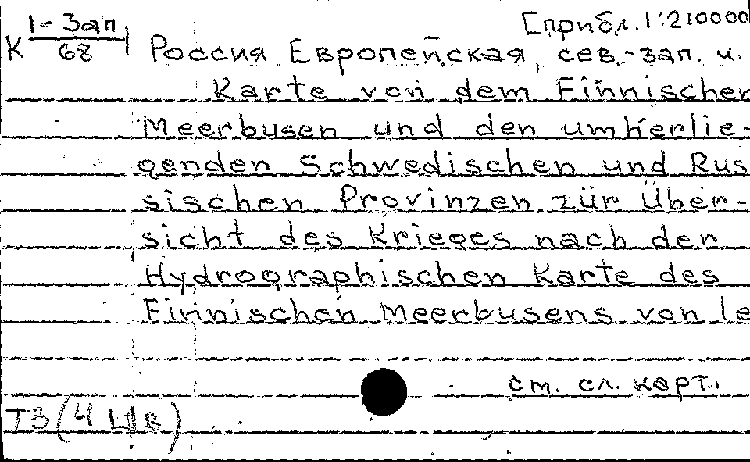 [прибл. 1:210000
К 1-Зап/68 Россия Европейская, сев.-зап. ч.
Karte von dem Finnischen
Meerbusen und den umherlie-
genden Schwedischen und Rus
sischen Provinzen zur Über-
sicht des Krieges nach der
Hydrographischen Karte des
Finnischen Meerbusens von le
см. сл. карт.
ТЗ (4